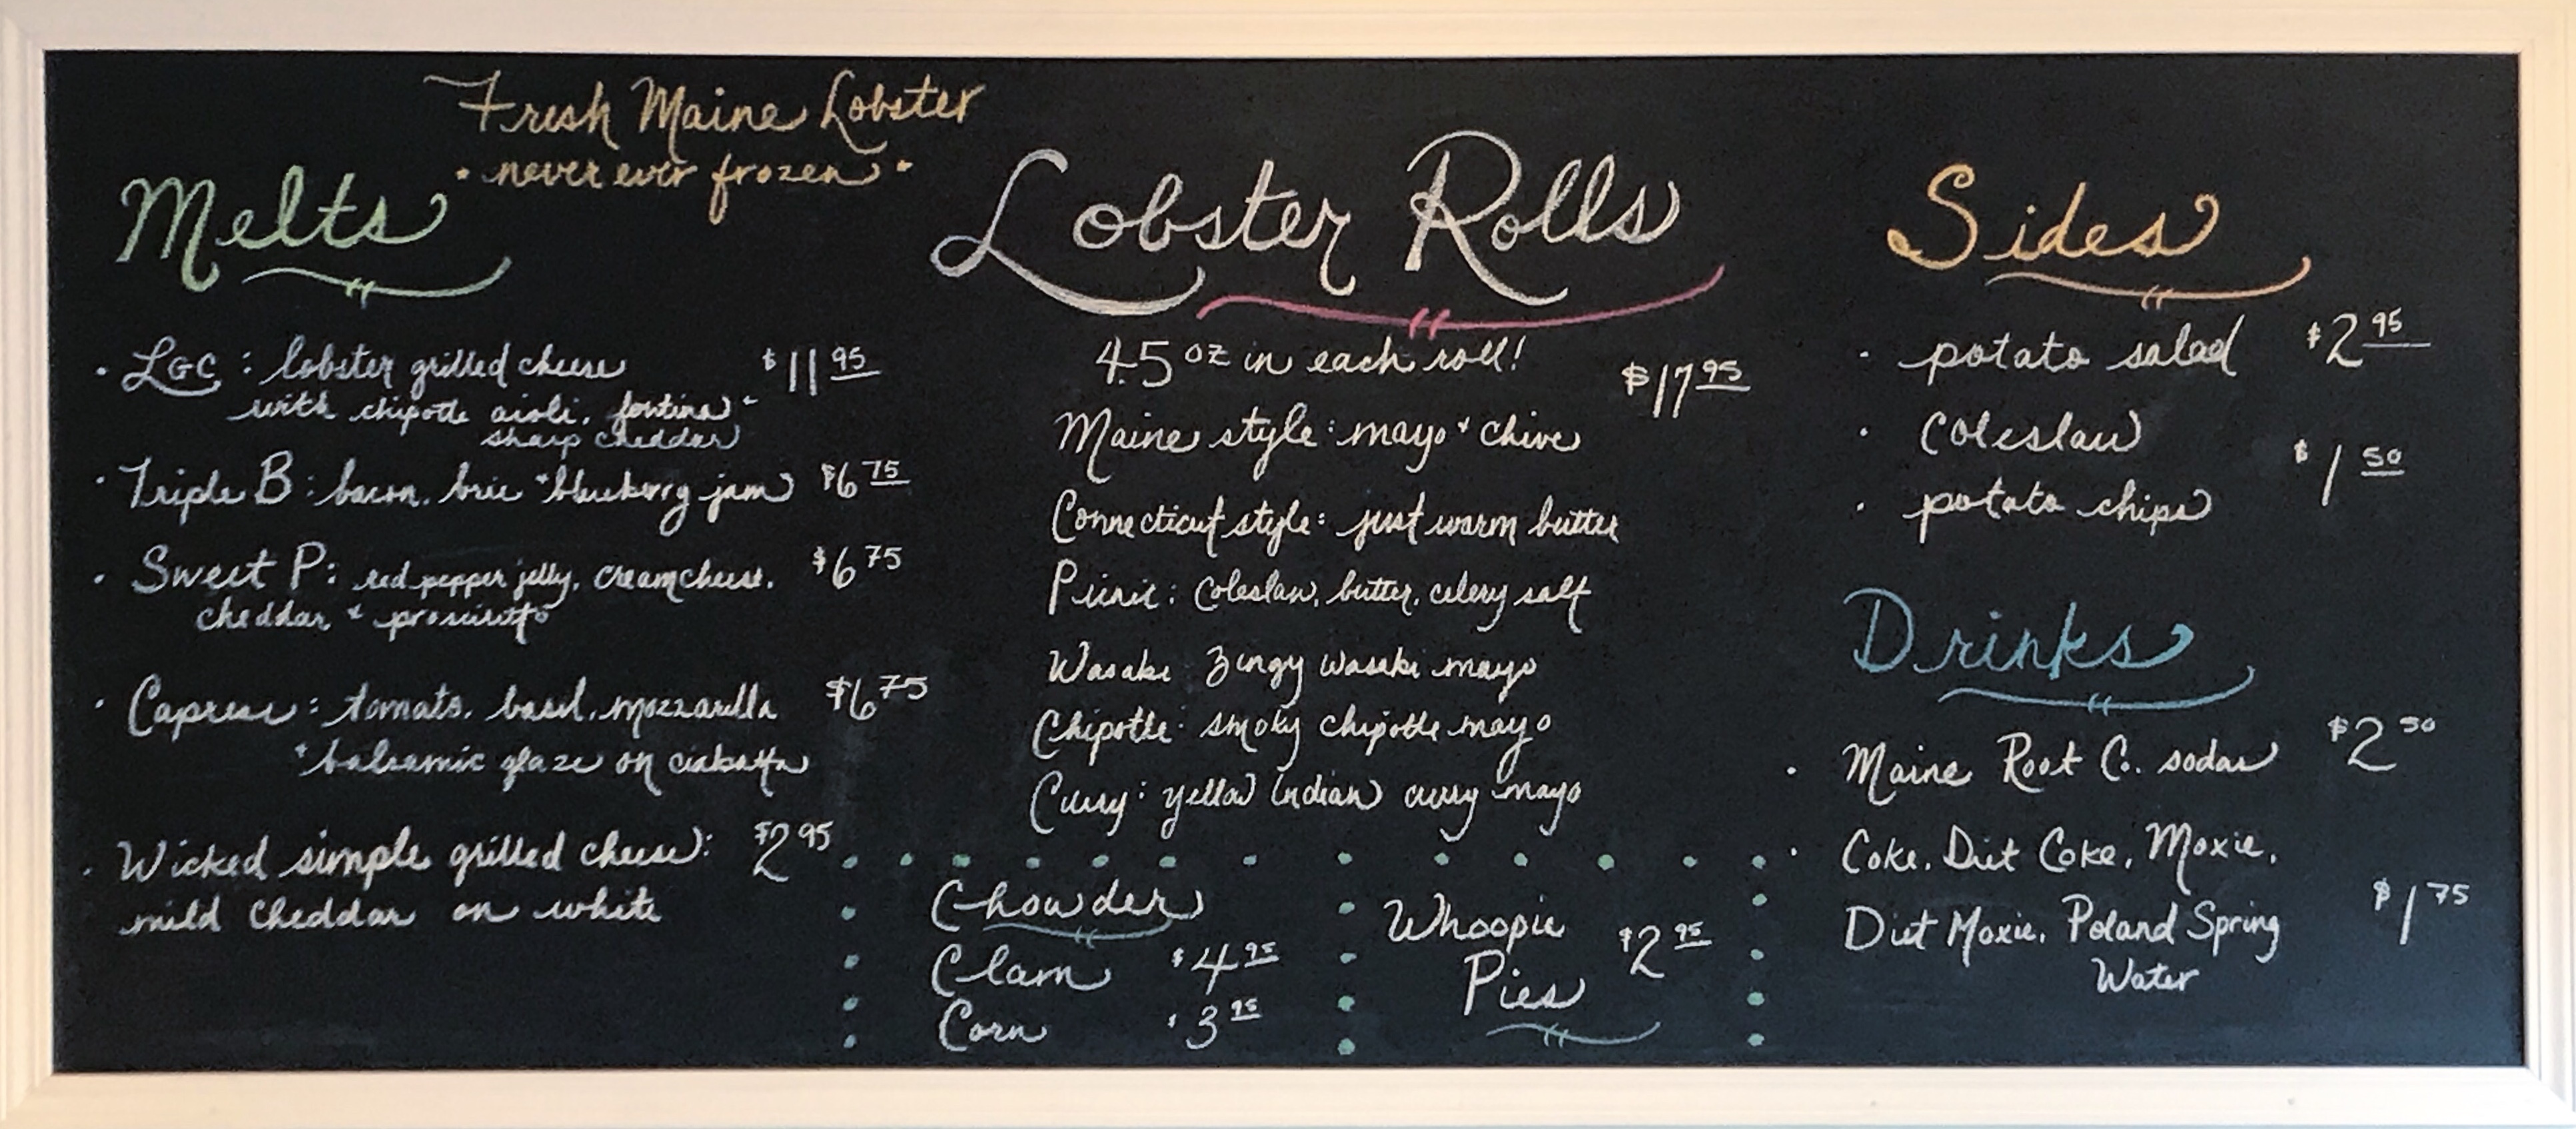 Fresh Maine Lobster
• never ever frozen •
Melts
• LGC : lobster grilled cheese $11 95
with chipotle aioli, fontina +
sharp cheddar
• Triple B : bacon, brie + blueberry jam $6 75
• Sweet P : red pepper jelly, cream cheese, $6 75
cheddar + prosciutto
• Caprese : tomato, basil, mozzarella $6 75
+ balsamic glaze on ciabatta
• Wicked simple grilled cheese : $2 95
mild cheddar on white
Lobster Rolls
4.5 oz in each roll! $17 95
Maine style : mayo + chive
Connecticut style : just warm butter
Picnic : coleslaw, butter, celery salt
Wasabi zingy wasabi mayo
Chipotle : smoky chipotle mayo
Curry : yellow Indian curry mayo
Chowder
Clam $4 95
Corn $3 95
Whoopie
Pies $2 95
Sides
• potato salad $2 95
• coleslaw
$1 50
• potato chips
Drinks
• Maine Root Co. sodas $2 50
• Coke, Diet Coke, Moxie,
Diet Moxie, Poland Spring $1 75
Water